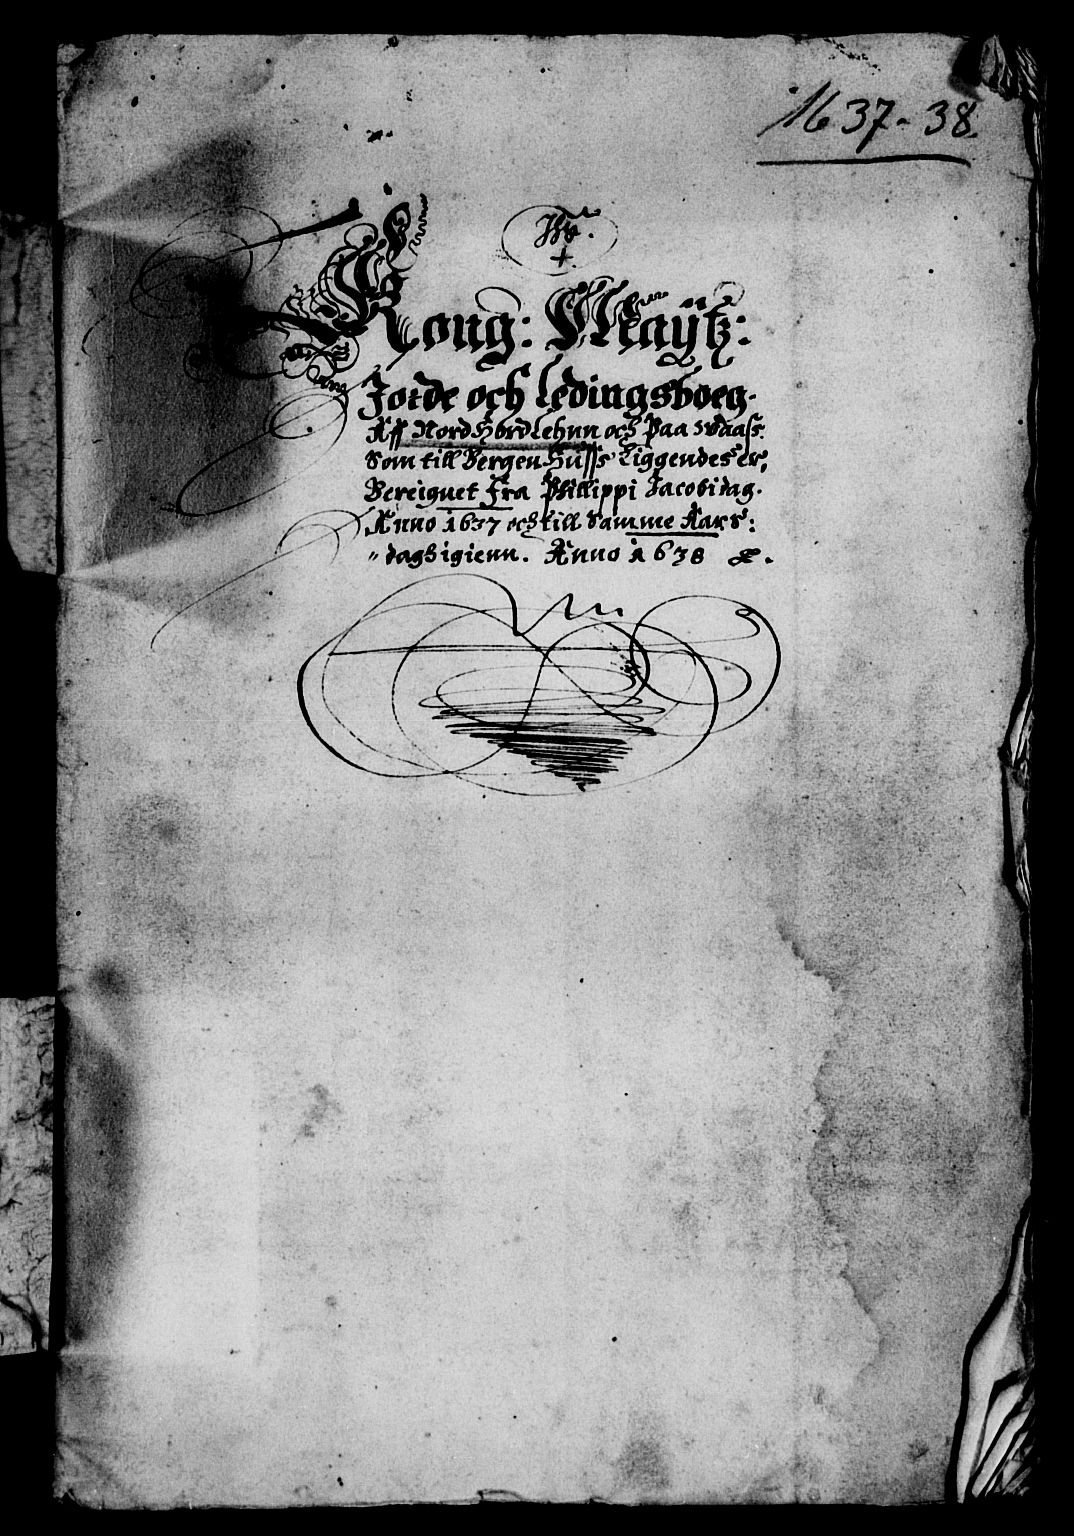 1637-38
Kong: Maÿtz:
Jorde och Ledingsboeg.
Aff NordHordLehnn och Paa Waass.
Som till Bergen Huss Liggendes er,
Bereignet Fra Phillippi Jacobi dag.
Anno 1637 och till Samme Aars:
"dagh igienn. Anno 1638 &.